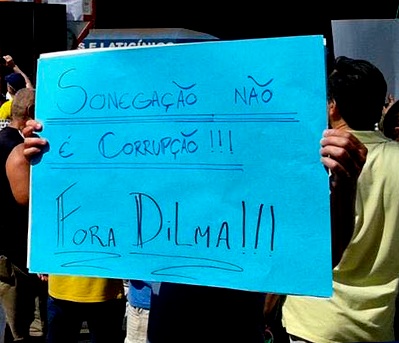 S E LATICÍNIOS
SONEGAÇÃO NÃO
É CORRUPÇÃO!!!
FORA DILMA!!!